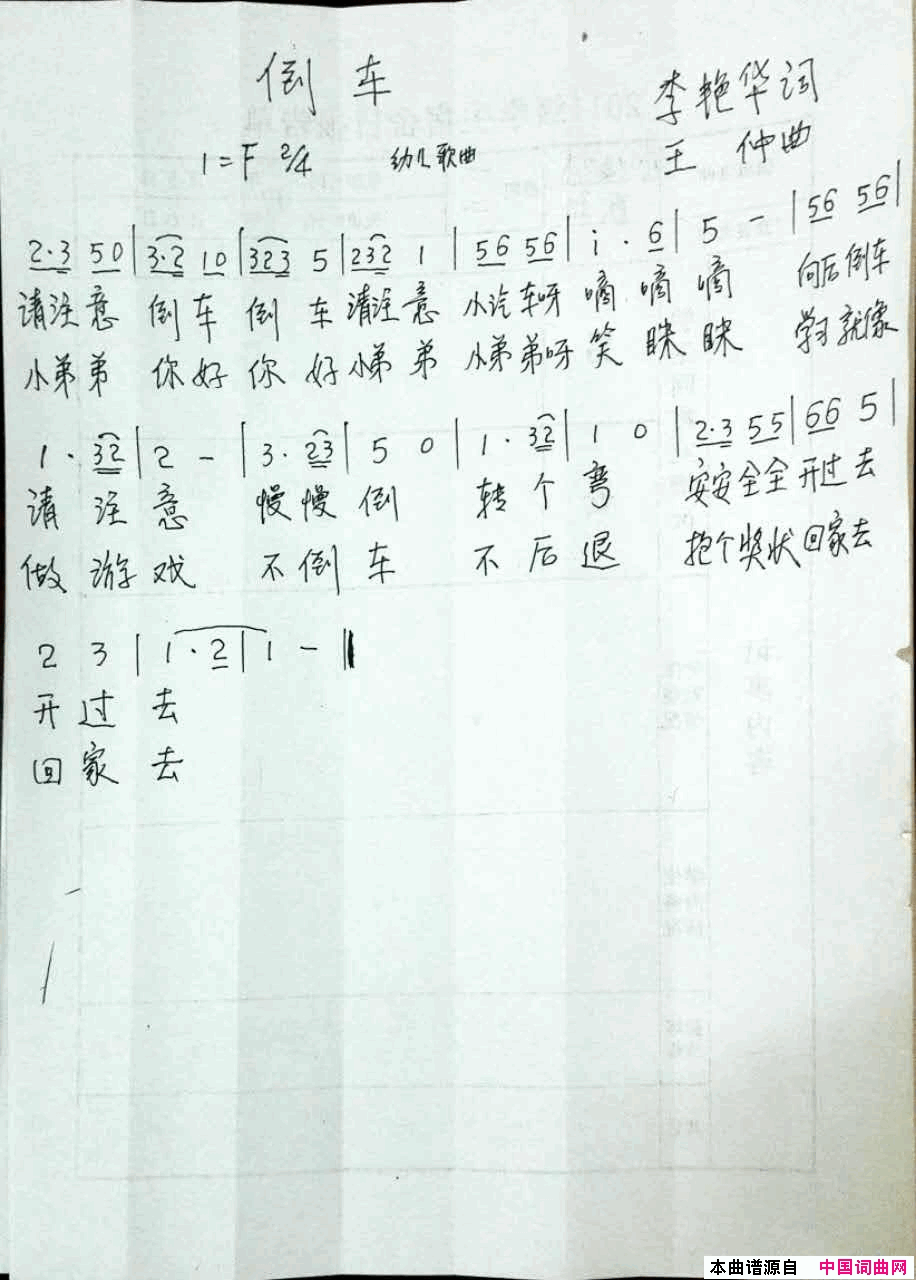 倒车
李艳华词
1=F 2/4 幼儿歌曲
王 仲曲
2·3 50|3·2 10|323 5|232 1|56 56|i·6|5 -|56 56|
请注意 倒车 倒 车 请注 意 小汽车呀 嘀 嘀 嘀 向后倒车
小弟弟 你好 你 好 小弟 弟 小弟弟呀 笑 眯 眯 学习就像
1·32|2 -|3·23|5 0|1·32|1 0|2·3 55|66 5|
请 注 意 慢慢 倒 转 个 弯 安安全全 开过 去
做 游 戏 不倒 车 不 后 退 抱个奖状 回家去
2 3|1·2|1 -‖
开 过 去
回 家 去
本曲谱源自 中国词曲网